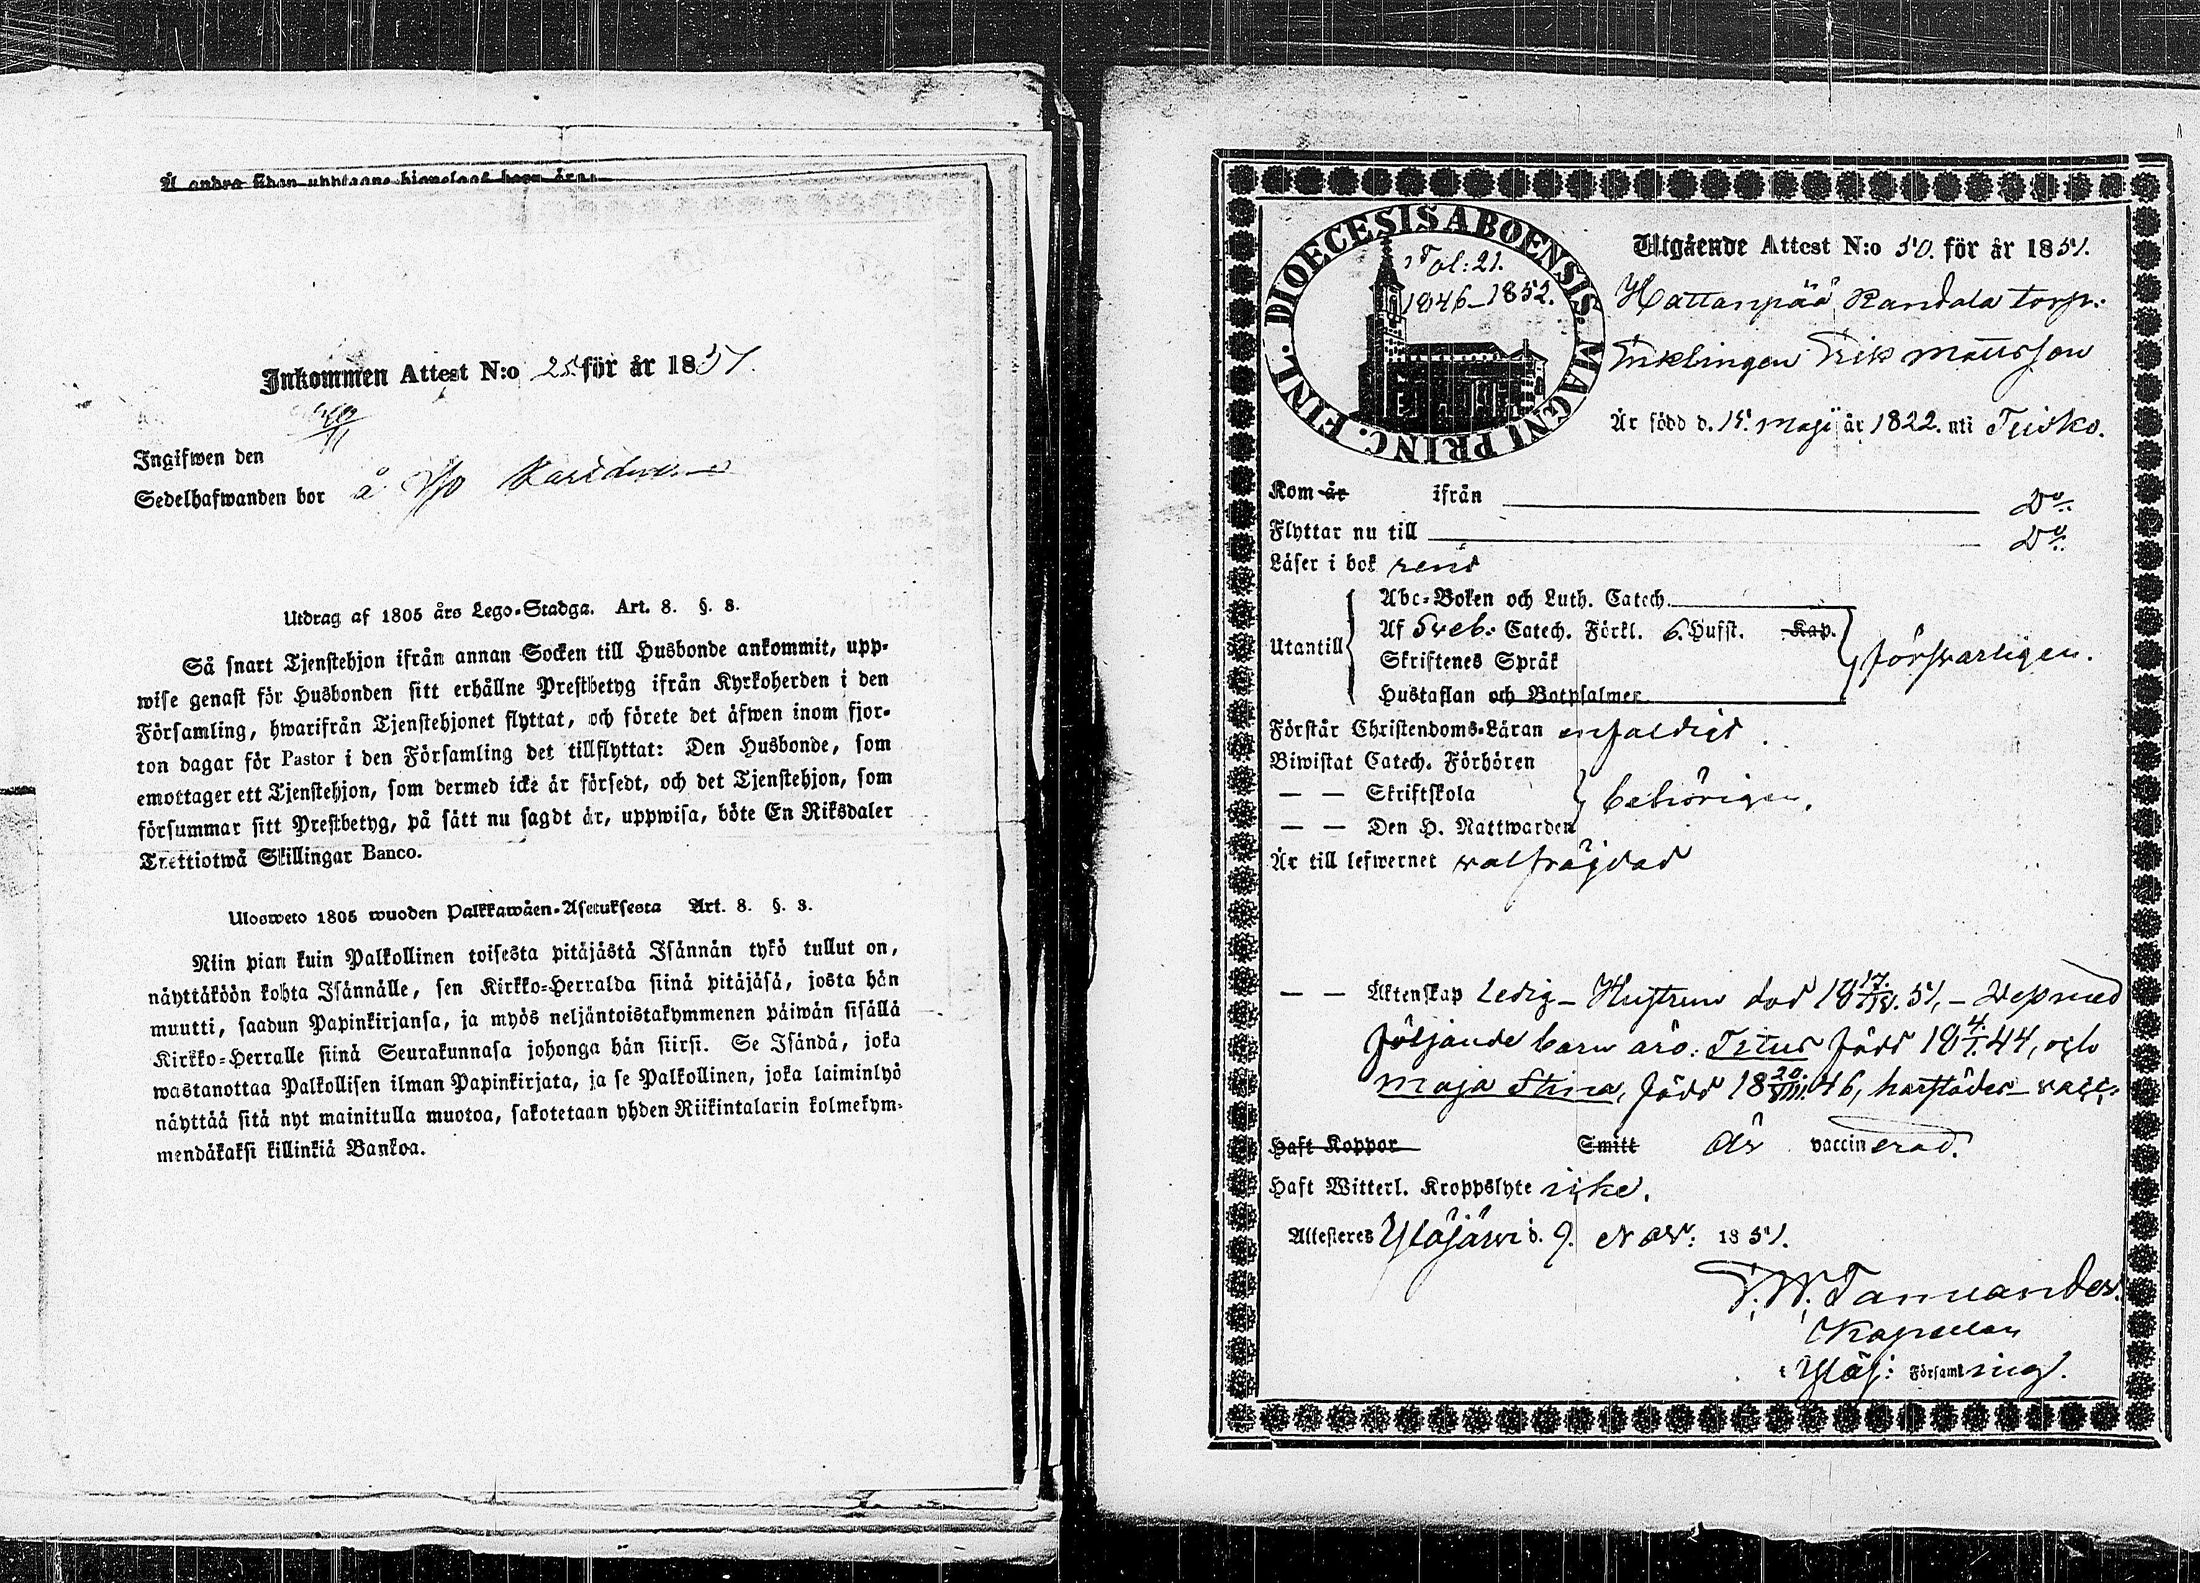 Å andra sidan upptagne bipoelagt barn äro:
Inkommen Attest N:o 25 för år 1851.
Ingifwen den 20/11
Sedelhafwanden bor å
Utdrag af 1805 års Lego-Stadga. Art. 8. §. 3.
Så snart Tjenstehjon ifrån annan Socken till Husbonde ankommit, upp-
wise genast för Husbonden sitt erhållne Prestbetyg ifrån Kyrkoherden i den
Församling, hwarifrån Tjenstehjonet flyttat, och förete det äfwen inom fjor-
ton dagar för Pastor i den Församling det tillflyttat: Den Husbonde, som
emottager ett Tjenstehjon, som dermed icke är försedt, och det Tjenstehjon, som
försummar sitt Prestbetyg, på sätt nu sagdt är, uppwisa, böte En Riksdaler
Trettiotwå Skillingar Banco.
Ulosweto 1805 wuoden Palkkawäen-Asetuksesta Art. 8. §. 3.
Niin pian kuin Palkollinen toisesta pitäjästä Isännän tykö tullut on,
näyttäköön kohta Isännälle, sen Kirkko-Herralda siinä pitäjäsä, josta hän
muutti, saadun Papinkirjansa, ja myös neljäntoistakymmenen päiwän sisällä
Kirkko-Herralle siinä Seurakunnasa johonga hän siirsi. Se Isändä, joka
wastanottaa Palkollisen ilman Papinkirjata, ja se Palkollinen, joka laiminlyö
näyttää sitä nyt mainitulla muotoa, sakotetaan yhden Riikintalarin kolmekym-
mendäkaksi killinkiä Bankoa.
DIOECESIS ABOENSIS. MAGNI PRINC. FINL.
Fol: 21.
1846-1852.
Utgående Attest N:o 50. för år 1851.
Hattanpää Randala torp:
Enklingen Erik Mattsson
Är född d. 15. Maji år 1822. uti Teisko.
Kom år ifrån D:o
Flyttar nu till D:o
Läser i bok rent
Utantill
Abc-Boken och Luth. Catech.
Af Sveb: Catech. Förkl. 6. Hufst. Kap.
Skriftenes Språk
Hustaflan och Botpsalmer
försvarligen.
Förstår Christendoms-Läran enfaldigt.
Biwistat Catech. Förhören
— — Skriftskola
— — Den H. Nattwarden
behörigen.
Är till lefwernet välfrägdad
— — Äktenskap Ledig - Hustrun död 18 17/ 51, - Dess med
följande barn äro: Titus född 18 4/1. 44, och
Maja Stina, född 18 20/VIII. 46, hartstädes - vacc:
Haft Koppor Smitt Är vaccinerad.
Haft Witterl. Kroppslyte icke.
Attesteres Ylöjärvi d. 9. Nov: 1851.
F. W. Tamlander.
Kapellan
i Ylöj: Församling.